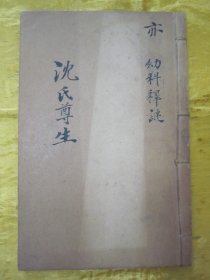 亦
幼科釋謎
沈氏尊生